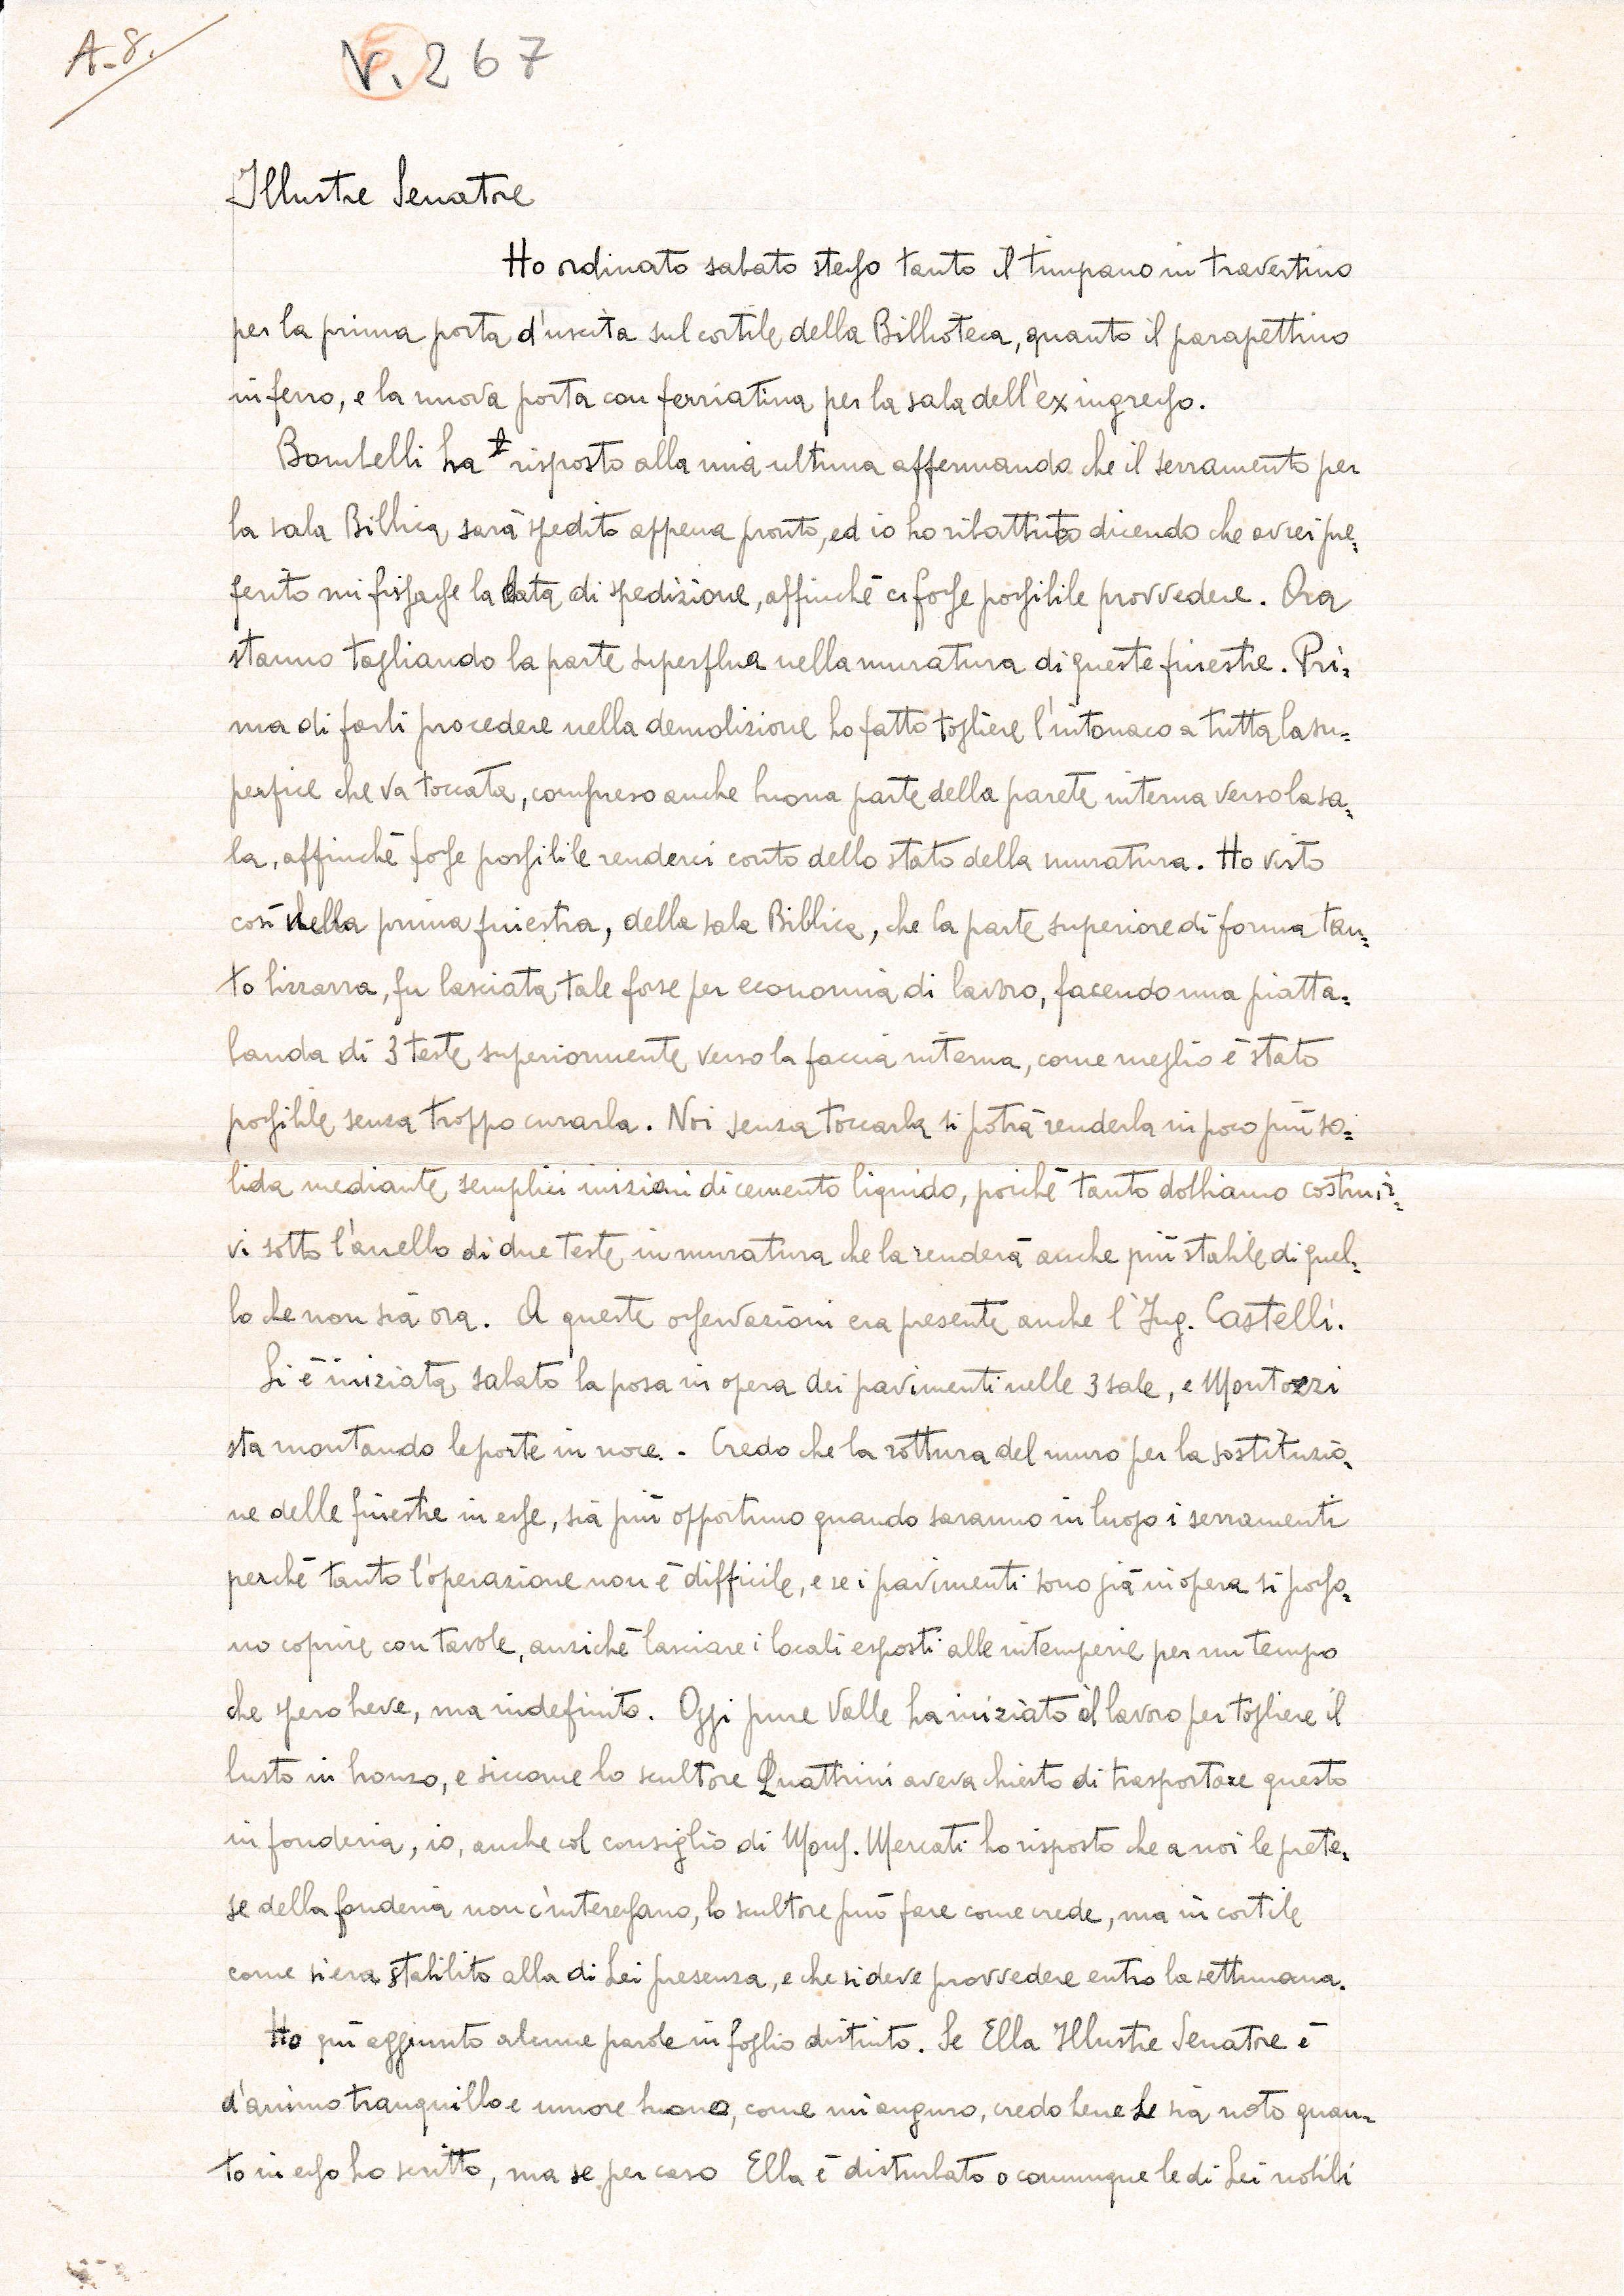 A-8.
V. 267
Illustre Senatore
Ho ordinato sabato stesso tanto il timpano in travertino
per la prima porta d'uscita sul cortile della Biblioteca, quanto il parapettino
in ferro, e la nuova porta con ferriatina per la sala dell'ex ingresso.
Bombelli ha risposto alla mia ultima affermando che il serramento per
la sala Biblica, sarà spedito appena pronto, ed io ho ribattuto dicendo che avrei pre=
ferito mi fissasse la data di spedizione, affinché ci fosse possibile provvedere. Ora
stanno tagliando la parte superflua nella muratura di queste finestre. Pri=
ma di farli procedere nella demolizione ho fatto togliere l'intonaco a tutta la su=
perfice che va toccata, compreso anche buona parte della parete interna verso la sa=
la, affinché fosse possibile renderci conto dello stato della muratura. Ho visto
così nella prima finestra, della sala Biblica, che la parte superiore di forma tan=
to bizzarra, fu lasciata tale forse per economia di lavoro, facendo una piatta=
banda di 3 teste superiormente verso la faccia interna, come meglio è stato
possibile senza troppo curarla. Noi senza toccarla si potrà renderla un poco più so=
lida mediante semplici inizioni di cemento liquido, poiché tanto dobbiamo costruir=
vi sotto l'anello di due teste in muratura che la renderà anche più stabile di quel=
lo che non sia ora. A queste osservazioni era presente anche l'Ing. Castelli.
Si è iniziata sabato la posa in opera dei pavimenti nelle 3 sale, e Montozzi
sta montando le porte in noce. - Credo che la rottura del muro per la sostituzio=
ne delle finestre in esse, sia più opportuno quando saranno in luogo i serramenti
perché tanto l'operazione non è difficile, e se i pavimenti sono già in opera si posso=
no coprire con tavole, anziché lasciare i locali esposti alle intemperie per un tempo
che spero breve, ma indefinito. Oggi pure Valle ha iniziato il lavoro per togliere il
busto in bronzo, e siccome lo scultore Quattrini aveva chiesto di trasportare questo
in fonderia, io, anche col consiglio di Mons. Mercati ho risposto che a noi le prete=
se della fonderia non c'interessano, lo scultore può fare come crede, ma in cortile
come si era stabilito alla di Lei presenza, e che si deve provvedere entro la settimana.
Ho qui aggiunto alcune parole in foglio distinto. Se Ella Illustre Senatore è
d'animo tranquillo e umore buono, come mi auguro, credo bene Le sia noto quan=
to in esso ho scritto, ma se per caso Ella è disturbato o comunque le di Lei nobili